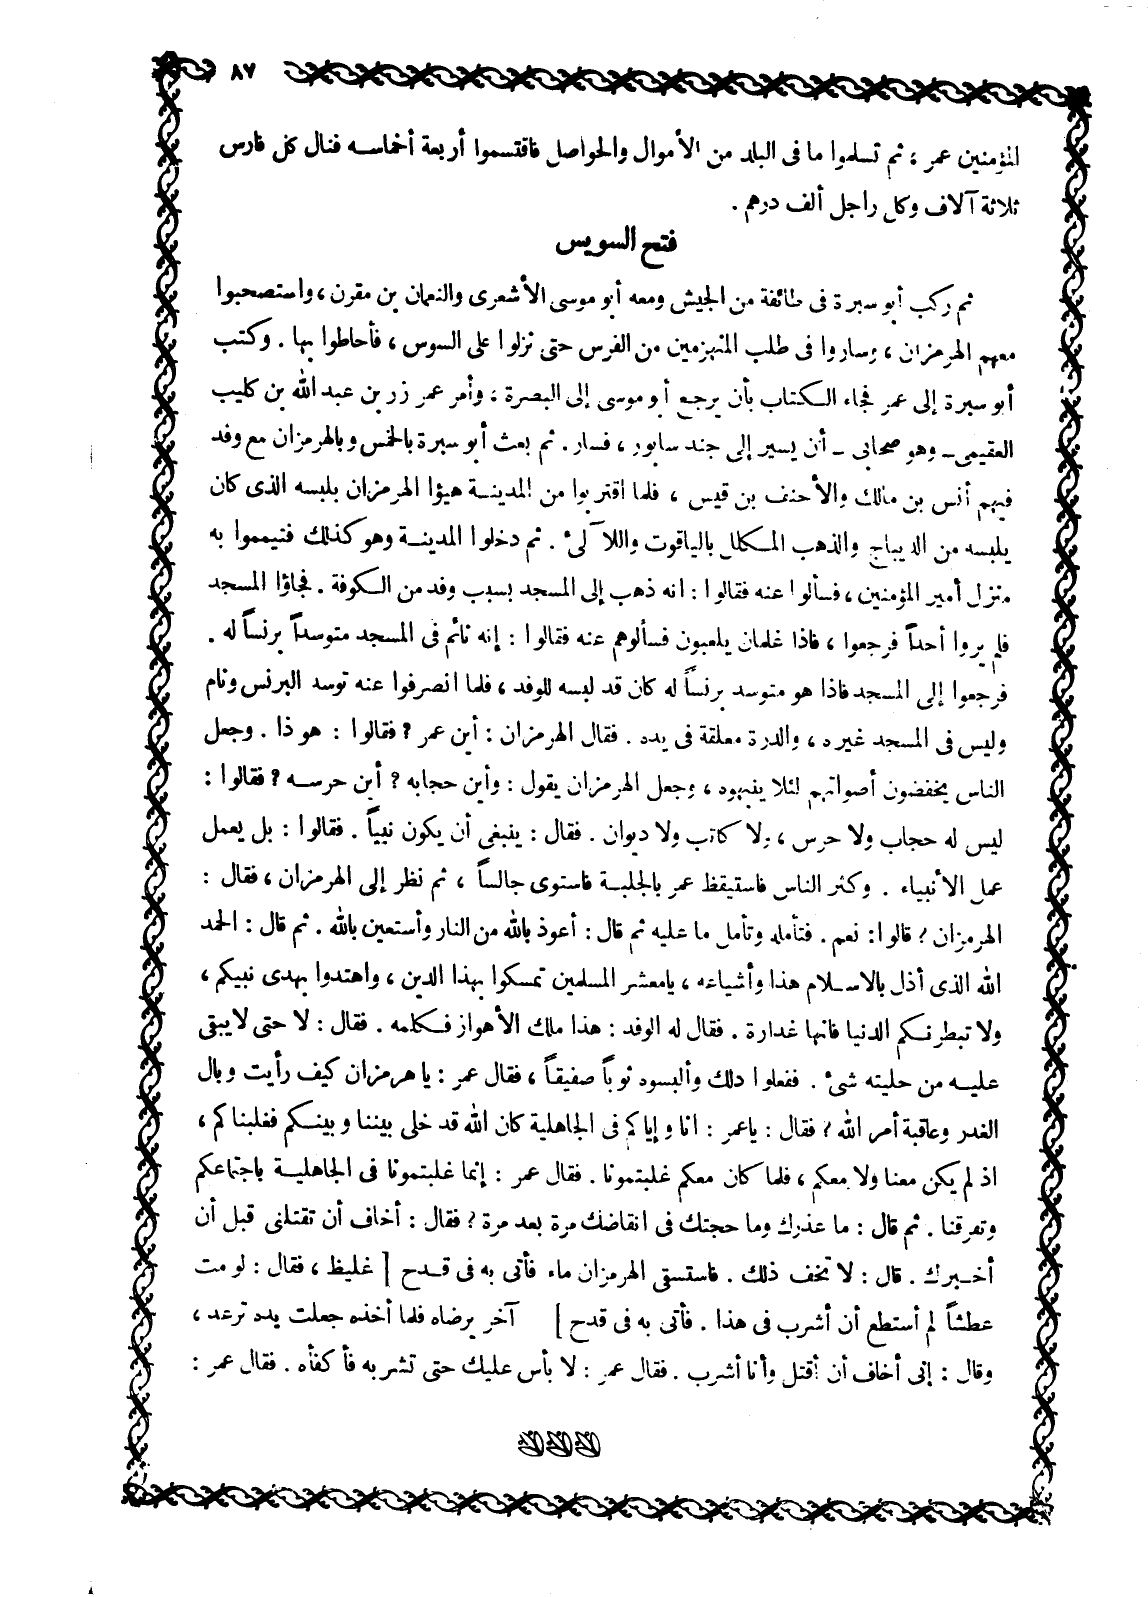 ٨٧
المؤمنين عمر ، ثم تسلموا ما فى البلد من الأموال والحواصل فاقتسموا أربعة أخماسه فنال كل فارس
ثلاثة آلاف وكل راجل ألف درهم .
فتح السويس
ثم ركب أبو سبرة فى طائفة من الجيش ومعه أبو موسى الأشعرى والنعمان بن مقرن ، واستصحبوا
معهم الهرمزان ، وساروا فى طلب المنهزمين من الفرس حتى نزلوا على السوس ، فأحاطوا بها . وكتب
أبو سبرة إلى عمر فجاء الكتاب بأن يرجع أبو موسى إلى البصرة ، وأمر عمر زر بن عبد الله بن كليب
العقيمى ـ وهو صحابى ـ أن يسير إلى جند سابور ، فسار . ثم بعث أبو سبرة بالخمس وبالهرمزان مع وفد
فيهم أنس بن مالك والأحنف بن قيس ، فلما اقتربوا من المدينة هيؤا الهرمزان بلبسه الذى كان
يلبسه من الديباج والذهب المكلل بالياقوت واللآلىء . ثم دخلوا المدينة وهو كذلك فتيمموا به
منزل أمير المؤمنين ، فسألوا عنه فقالوا : انه ذهب إلى المسجد بسبب وفد من الكوفة . فجاؤا المسجد
فلم يروا أحداً فرجعوا ، فاذا غلمان يلعبون فسألوهم عنه فقالوا : إنه نائم فى المسجد متوسداً برنساً له .
فرجعوا إلى المسجد فاذا هو متوسد برنساً له كان قد لبسه للوفد ، فلما انصرفوا عنه توسد البرنس ونام
وليس فى المسجد غيره ، والدرة معلقة فى يده . فقال الهرمزان : أين عمر ؟ فقالوا : هو ذا . وجعل
الناس يخفضون أصواتهم لئلا ينبهوه ، وجعل الهرمزان يقول : وأين حجابه ؟ أين حرسه ؟ فقالوا :
ليس له حجاب ولا حرس ، ولا كاتب ولا ديوان . فقال : ينبغى أن يكون نبياً . فقالوا : بل يعمل
عمل الأنبياء . وكثر الناس فاستيقظ عمر بالجلبة فاستوى جالساً ، ثم نظر إلى الهرمزان ، فقال :
الهرمزان ؟ قالوا : نعم . فتأمله وتأمل ما عليه ثم قال : أعوذ بالله من النار وأستعين بالله . ثم قال : الحمد
الله الذى أذل بالاسلام هذا وأشياعه ، يامعشر المسلمين تمسكوا بهذا الدين ، واهتدوا بهدى نبيكم ،
ولا تبطرنكم الدنيا فانها غدارة . فقال له الوفد : هذا ملك الأهواز فكلمه . فقال : لا حتى لا يبقى
عليه من حليته شىء . ففعلوا ذلك وألبسوه ثوباً صفيقاً ، فقال عمر : يا هرمزان كيف رأيت وبال
الغدر وعاقبة أمر الله ؟ فقال : ياعمر : انا وإياكم فى الجاهلية كان الله قد خلى بيننا وبينكم فغلبناكم ،
اذ لم يكن معنا ولا معكم ، فلما كان معكم غلبتمونا . فقال عمر : إنما غلبتمونا فى الجاهلية باجتماعكم
وتفرقنا . ثم قال : ما عذرك وما حجتك فى انقاضك مرة بعد مرة ؟ فقال : أخاف أن تقتلنى قبل أن
أخبرك . قال : لا تخف ذلك . فاستسقى الهرمزان ماء فأتى به فى قدح [ غليظ ، فقال : لو مت
عطشاً لم أستطع أن أشرب فى هذا . فأتى به فى قدح ] آخر يرضاه فلما أخذه جعلت يده ترعد ،
وقال : إنى أخاف أن أقتل وأنا أشرب . فقال عمر : لا بأس عليك حتى تشربه فأكفأه . فقال عمر :